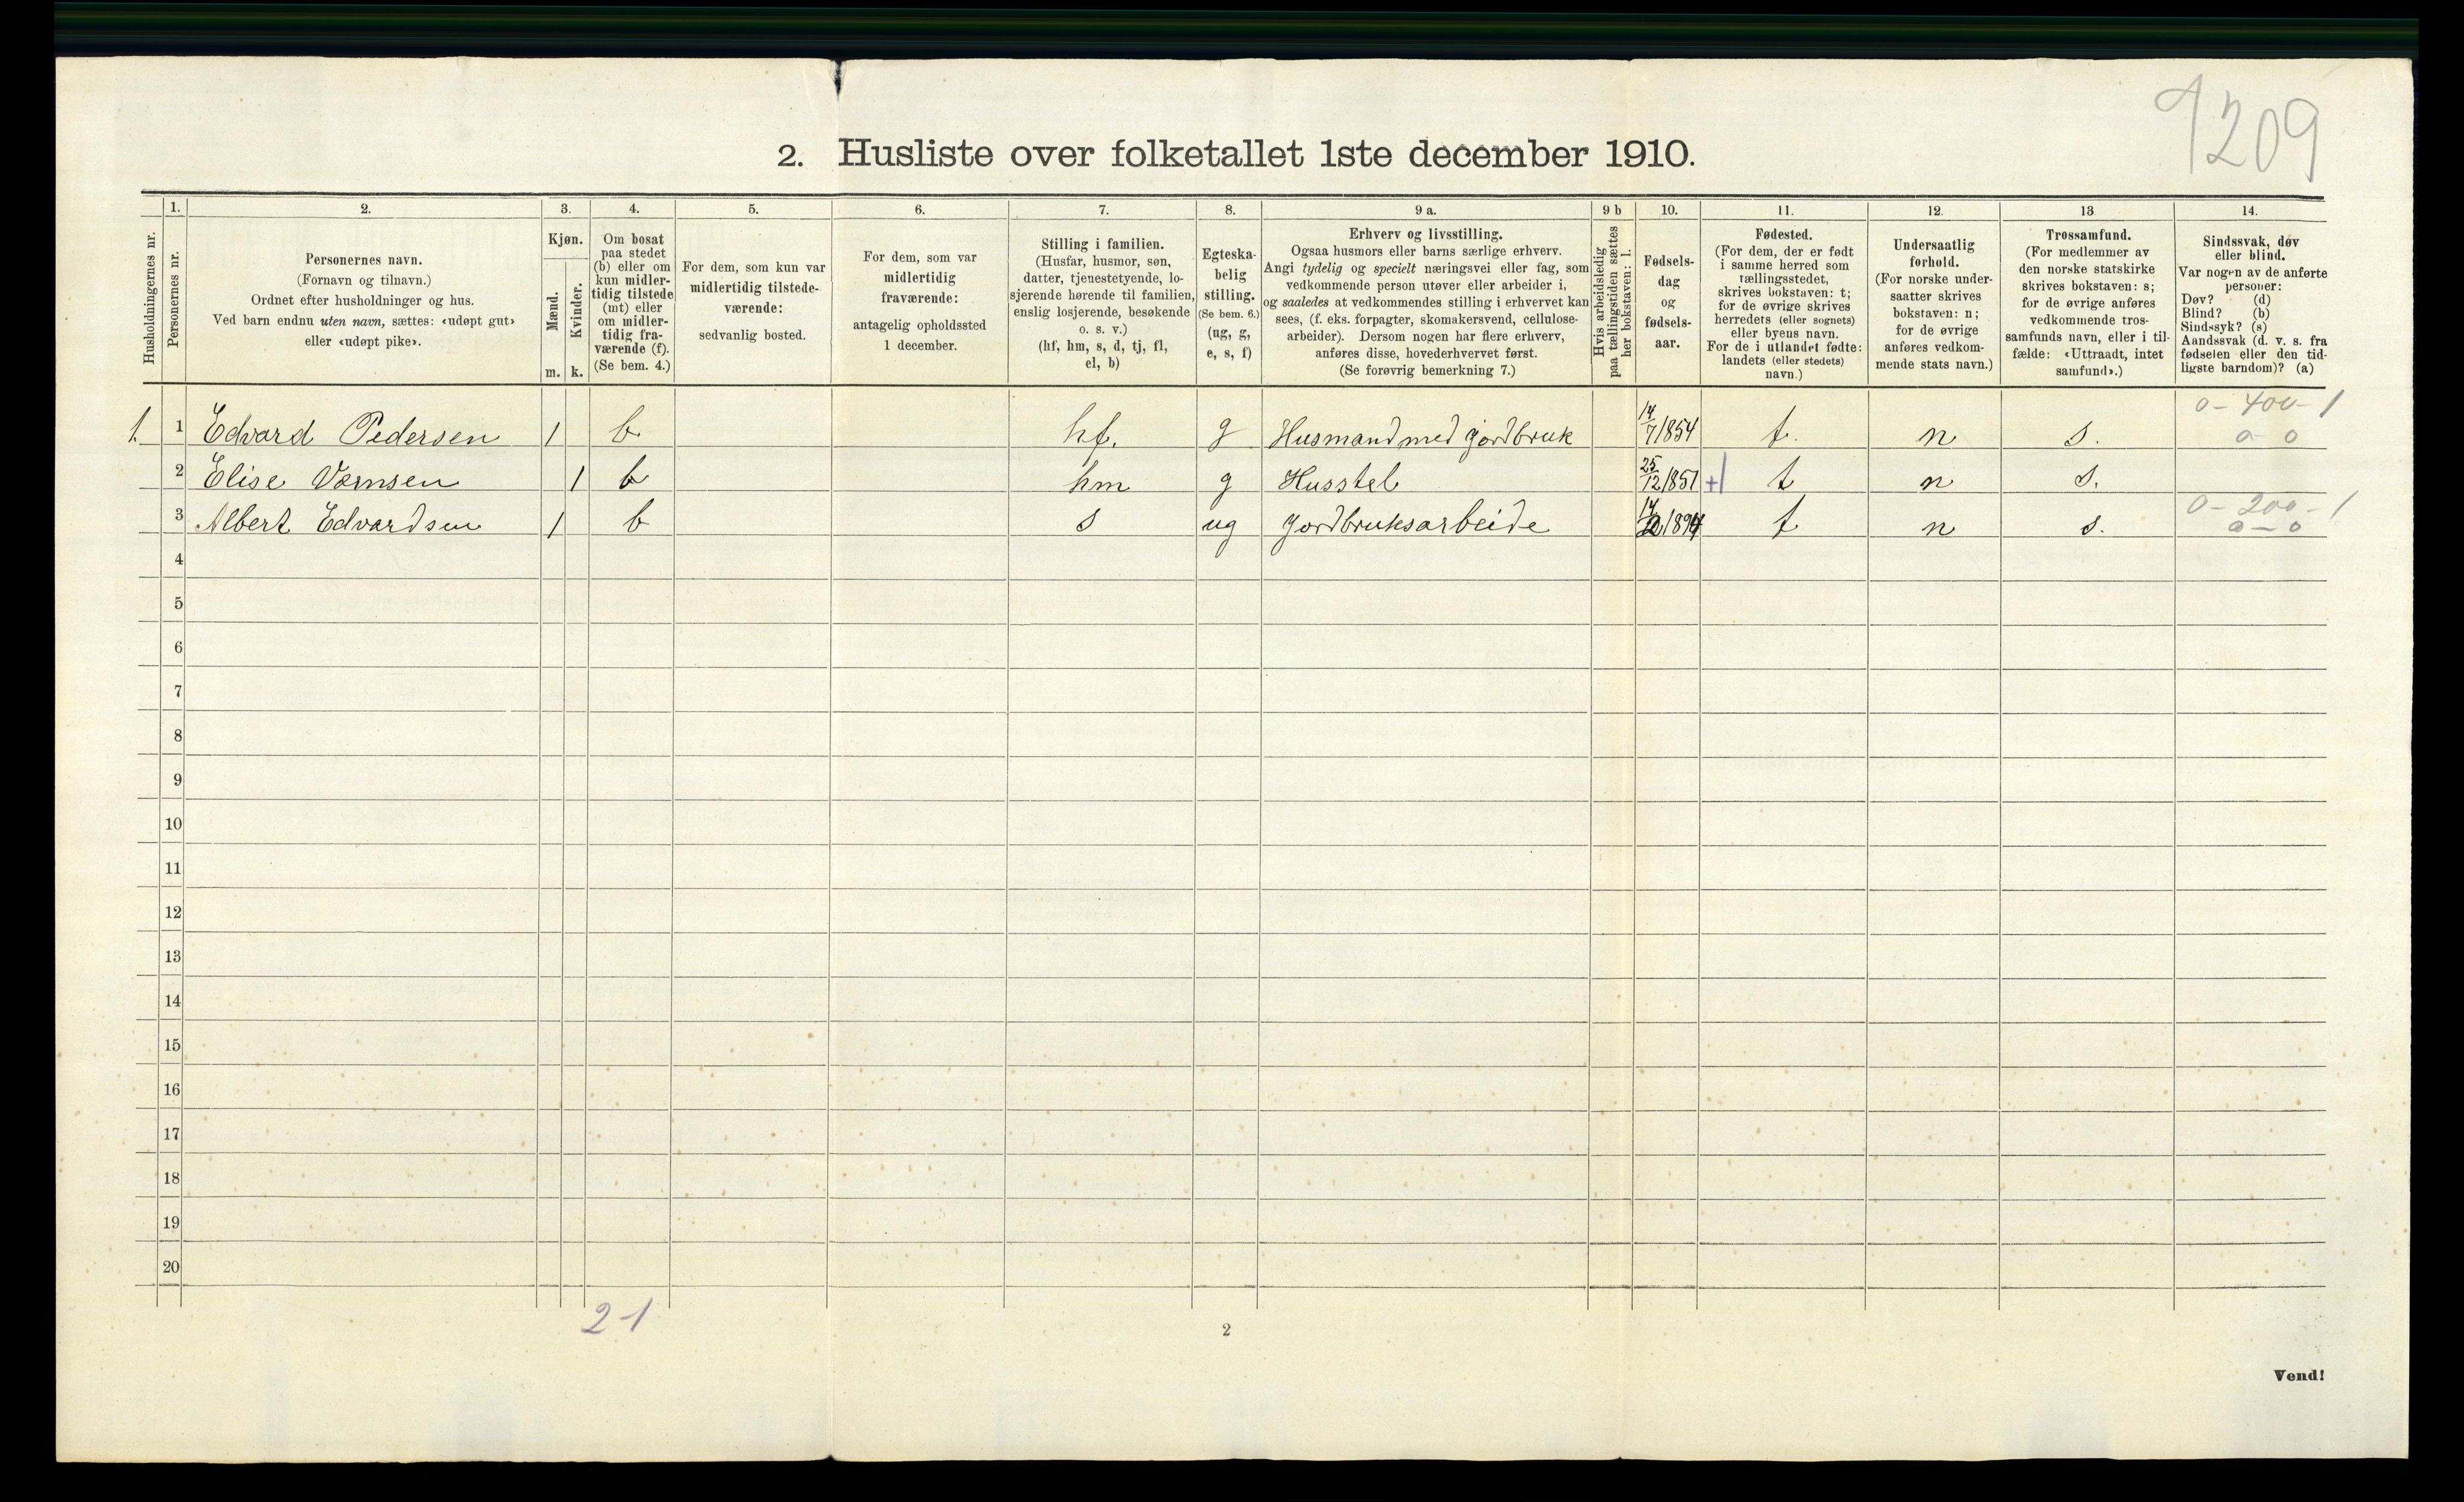 9209
2. Husliste over folketallet 1ste december 1910.
1. 2. 3. 4. 5. 6. 7. 8. 9 a. 9 b 10. 11. 12. 13 14.
Husholdningernes nr.
Personernes nr.
Personernes navn.
(Fornavn og tilnavn.)
Ordnet efter husholdninger og hus.
Ved barn endnu uten navn, sættes: «udøpt gut»
eller «udøpt pike».
Kjøn.
Mænd.
Kvinder.
m. k.
Om bosat
paa stedet
(b) eller om
kun midler-
tidig tilstede
(mt) eller
om midler-
tidig fra-
værende (f).
(Se bem. 4.)
For dem, som kun var
midlertidig tilstede-
værende:
sedvanlig bosted.
For dem, som var
midlertidig
fraværende:
antagelig opholdssted
1 december.
Stilling i familien.
(Husfar, husmor, søn,
datter, tjenestetyende, lo-
sjerende hørende til familien,
enslig losjerende, besøkende
o. s. v.)
(hf, hm, s, d, tj, fl,
el, b)
Egteska-
belig
stilling.
(Se bem. 6.)
(ug, g,
e, s, f)
Erhverv og livsstilling.
Ogsaa husmors eller barns særlige erhverv.
Angi tydelig og specielt næringsvei eller fag, som
vedkommende person utøver eller arbeider i,
og saaledes at vedkommendes stilling i erhvervet kan
sees, (f. eks. forpagter, skomakersvend, cellulose-
arbeider). Dersom nogen har flere erhverv,
anføres disse, hovederhvervet først.
(Se forøvrig bemerkning 7.)
Hvis arbeidsledig
paa tællingstiden sættes
her bokstaven: l.
Fødsels-
dag
og
fødsels-
aar.
Fødested.
(For dem, der er født
i samme herred som
tællingsstedet,
skrives bokstaven: t;
for de øvrige skrives
herredets (eller sognets)
eller byens navn.
For de i utlandet fødte:
landets (eller stedets)
navn.)
Undersaatlig
forhold.
(For norske under-
saatter skrives
bokstaven: n;
for de øvrige
anføres vedkom-
mende stats navn.)
Trossamfund.
(For medlemmer av
den norske statskirke
skrives bokstaven: s;
for de øvrige anføres
vedkommende tros-
samfunds navn, eller i til-
fælde: «Uttraadt, intet
samfund».)
Sindssvak, døv
eller blind.
Var nogen av de anførte
personer:
Døv? (d)
Blind? (b)
Sindssyk? (s)
Aandssvak (d. v. s. fra
fødselen eller den tid-
ligste barndom)? (a)
0 - 400 - 1
1. 1 Edvard Pedersen 1 b hf. g Husmand med jordbruk 14/7 1854 t. n s. 0 - 0
2 Elise Vernsen 1 b hm g Husstel 25/12 1851 +1 t n s.
0 - 200 - 1
3 Albert Edvardsen 1 b s ug Jordbruksarbeide 14/ 1894 t n s. 0 - 0
4
5
6
7
8
9
10
11
12
13
14
15
16
17
18
19
20
2-1
2
Vend!